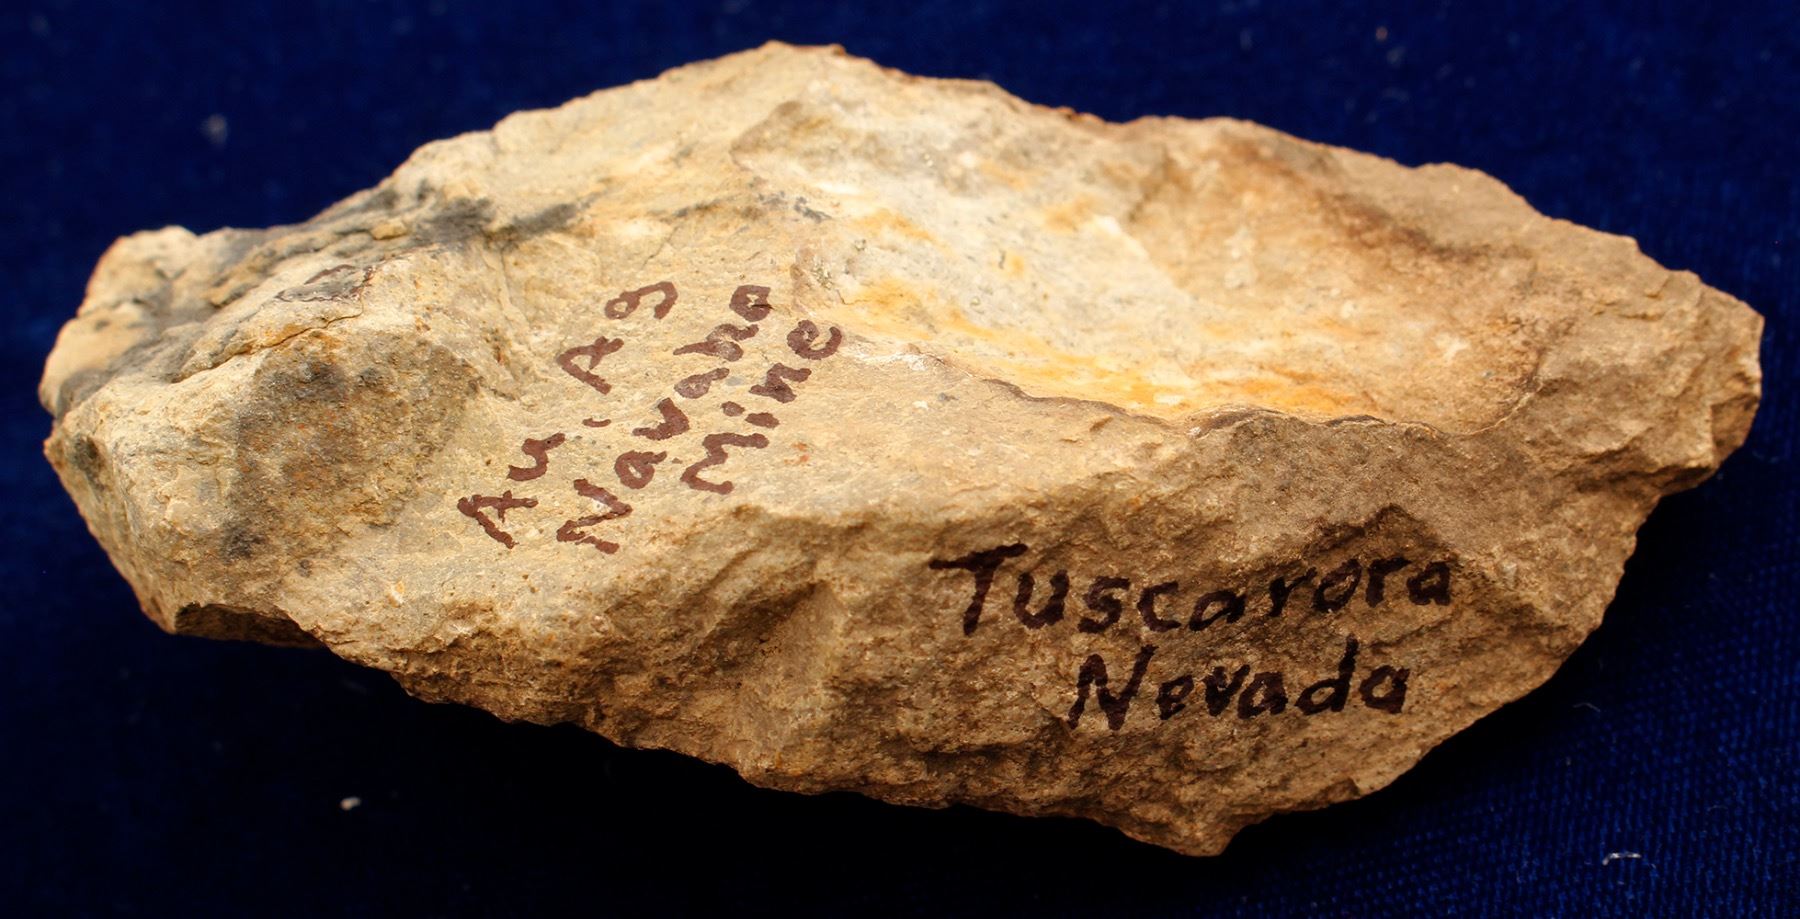 Au, Ag
Navaho
Mine
Tuscarora
Nevada